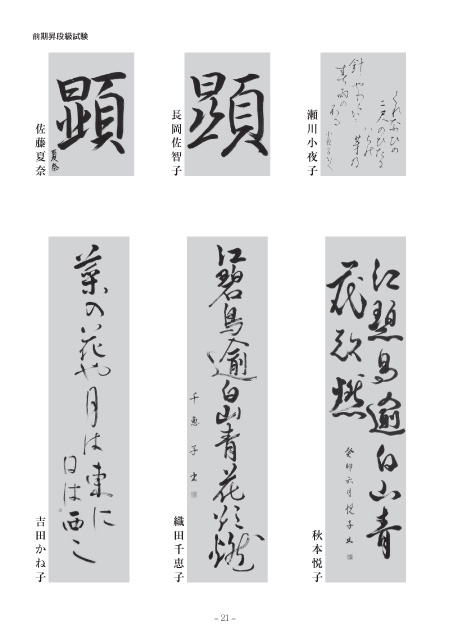 前期昇段級試験
くれなゐの
二尺のびたる
芽の
針やわらかに
春雨のふる
瀬川小夜子
顕
長岡佐智子
顕
夏奈
佐藤夏奈
江碧鳥逾白山青
花欲燃
癸卯六月 悦子書
秋本悦子
江碧鳥逾白山青花欲燃
千恵子書
織田千恵子
菜の花や月は東に
日は西に
吉田かね子
– 21 –